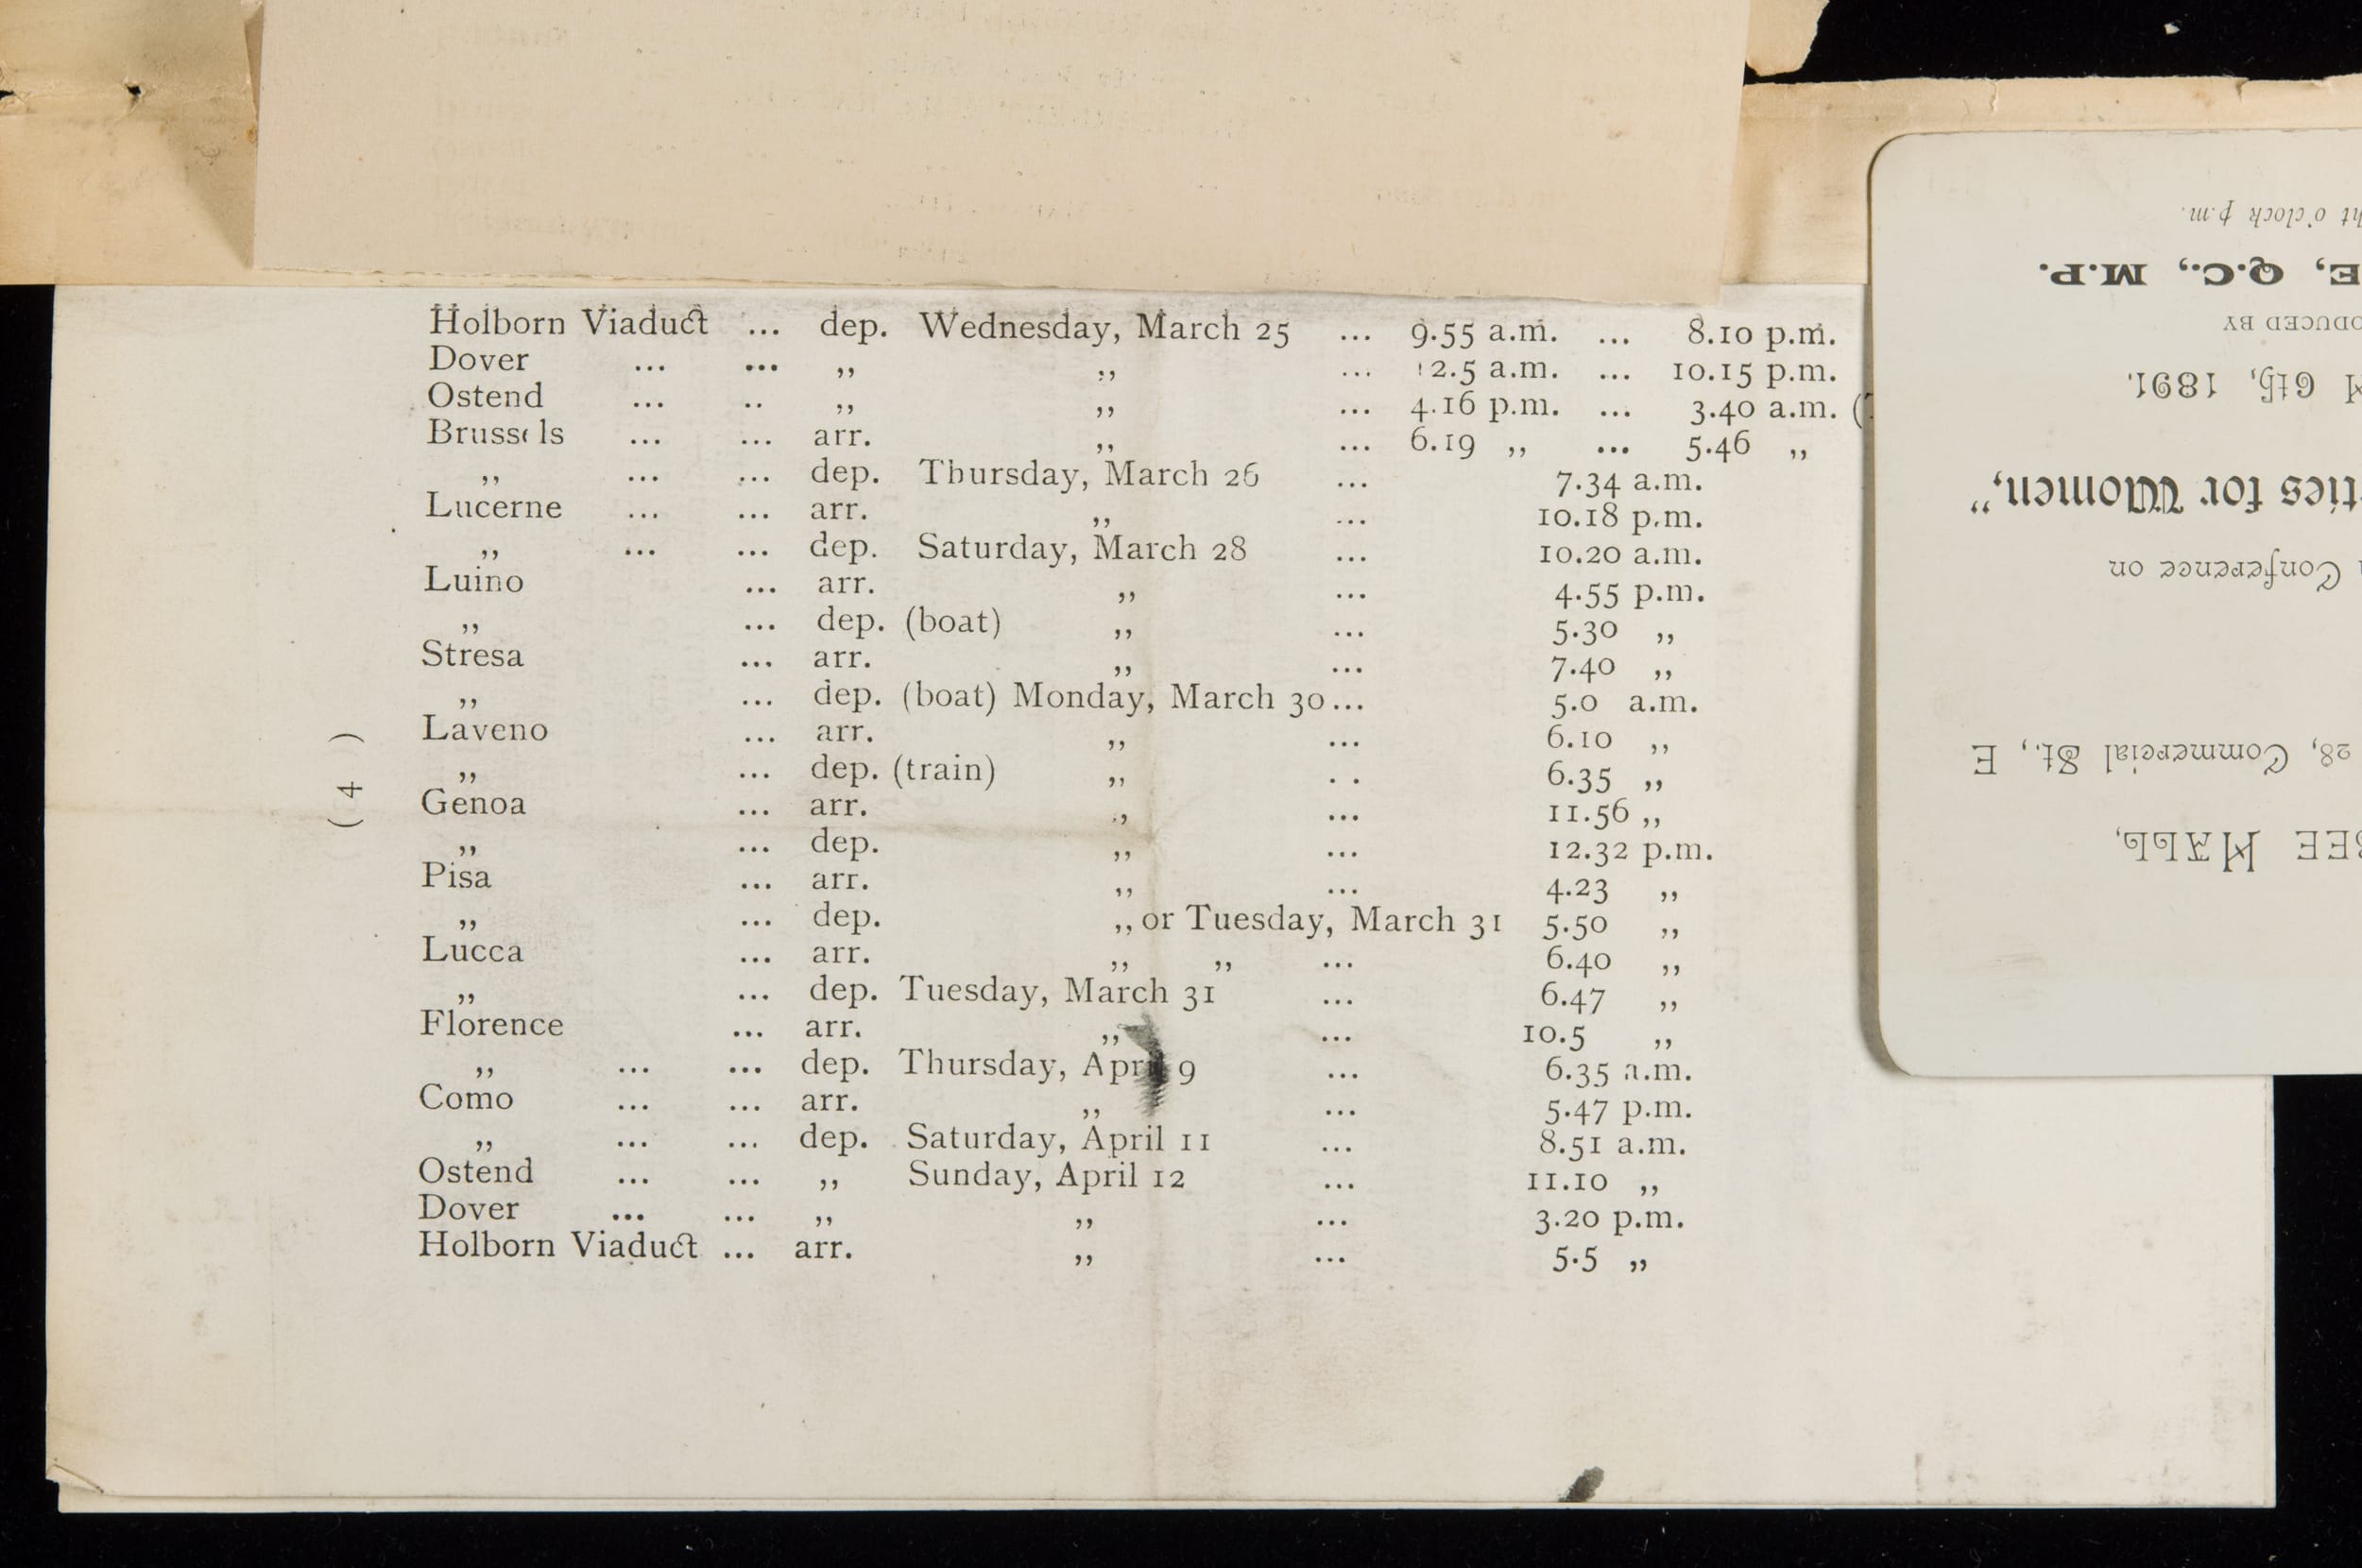 Holborn Viaduct ... dep. Wednesday, March 25 ... 9.55 a.m. ... 8.10 p.m.
Dover ... ... ,, ,, ... 12.5 a.m. ... 10.15 p.m.
Ostend ... .. ,, ,, ... 4.16 p.m. ... 3.40 a.m. (
Brussels ... ... arr. ,, ... 6.19 ,, ... 5.46 ,,
,, ... ... dep. Thursday, March 26 ... 7.34 a.m.
Lucerne ... ... arr. ,, ... 10.18 p.m.
,, ... ... dep. Saturday, March 28 ... 10.20 a.m.
Luino ... arr. ,, ... 4.55 p.m.
,, ... dep. (boat) ,, ... 5.30 ,,
Stresa ... arr. ,, ... 7.40 ,,
,, ... dep. (boat) Monday, March 30... 5.0 a.m.
Laveno ... arr. ,, ... 6.10 ,,
,, ... dep. (train) ,, . . 6.35 ,,
Genoa ... arr. ,, ... 11.56 ,,
,, ... dep. ,, ... 12.32 p.m.
Pisa ... arr. ,, ... 4.23 ,,
,, ... dep. ,, or Tuesday, March 31 5.50 ,,
Lucca ... arr. ,, ,, ... 6.40 ,,
,, ... dep. Tuesday, March 31 ... 6.47 ,,
Florence ... arr. ,, ... 10.5 ,,
,, ... ... dep. Thursday, April 9 ... 6.35 a.m.
Como ... ... arr. ,, ... 5.47 p.m.
,, ... ... dep. Saturday, April 11 ... 8.51 a.m.
Ostend ... ... ,, Sunday, April 12 ... 11.10 ,,
Dover ... ... ,, ,, ... 3.20 p.m.
Holborn Viaduct ... arr. ,, ... 5.5 ,,
( 4 )
BEE HALL,
28, Commercial St., E
Conference on
ties for Women,"
6th, 1891.
ODUCED BY
E, Q.C., M.P.
ht o'clock p.m.